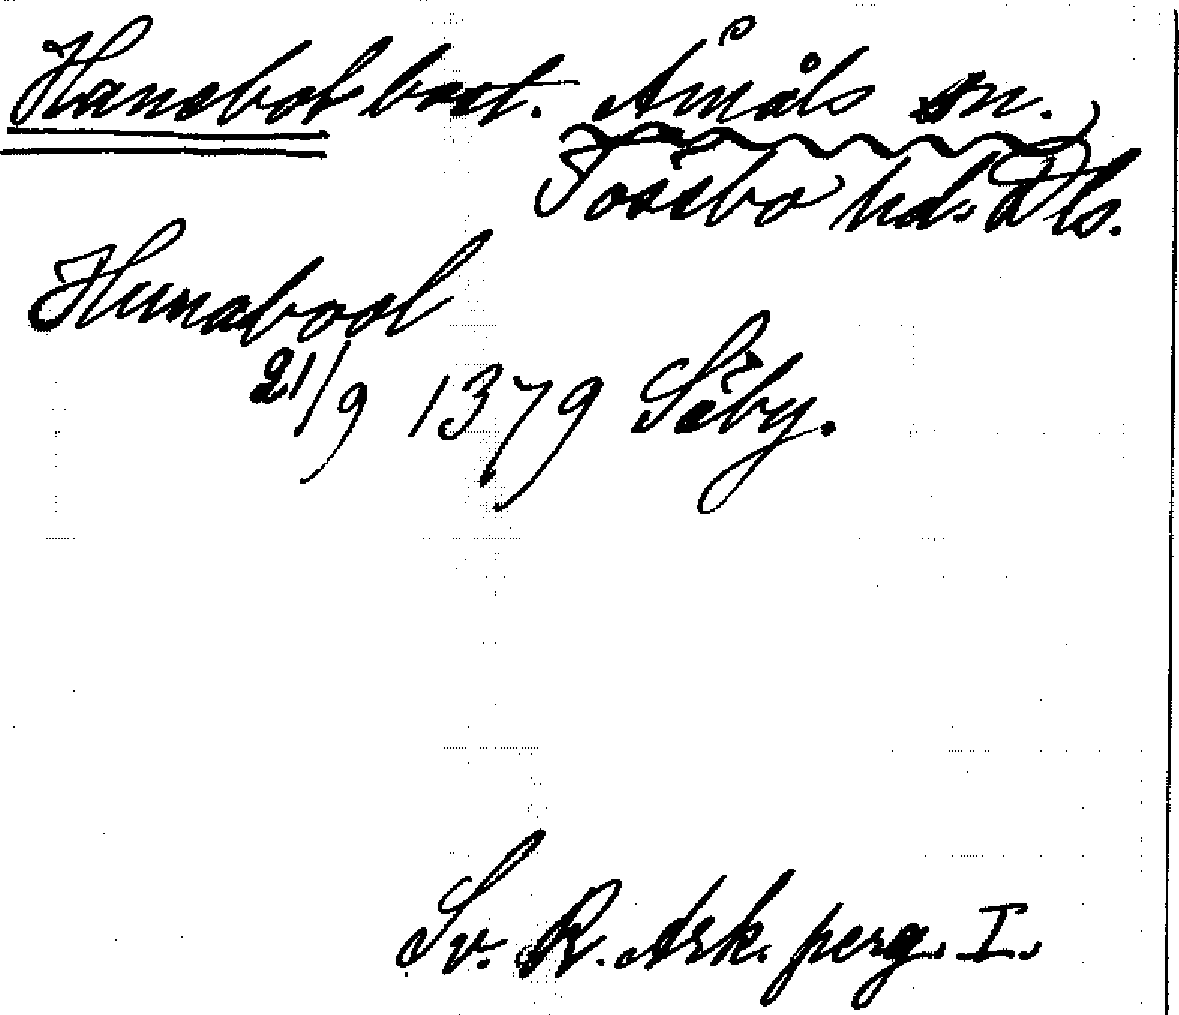 Hansbol bost. Åmåls sn.
Tössbo hd. Dls.
Hunabool
21/9 1379 Säby.
Sv. R. Ark. perg. I.